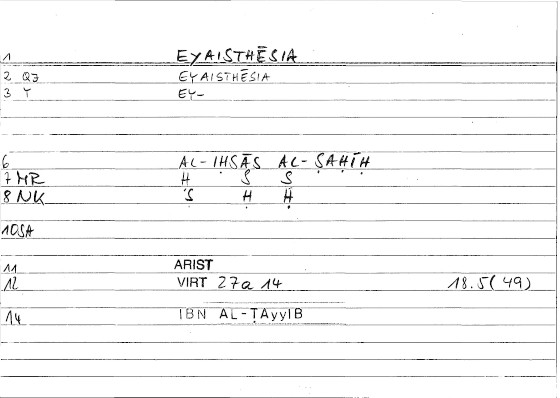 1 EYAISTHĒSIA
2 QJ EYAISTHĒSIA
3 Y EY-
6 AL-IḤSĀS AL-ṢAḤĪḤ
7 MR H S S
8 NK Ṣ Ḥ Ḥ
10 SA
11 ARIST
12 VIRT 27a 14 18.5(49)
14 IBN AL-ṬAyyIB